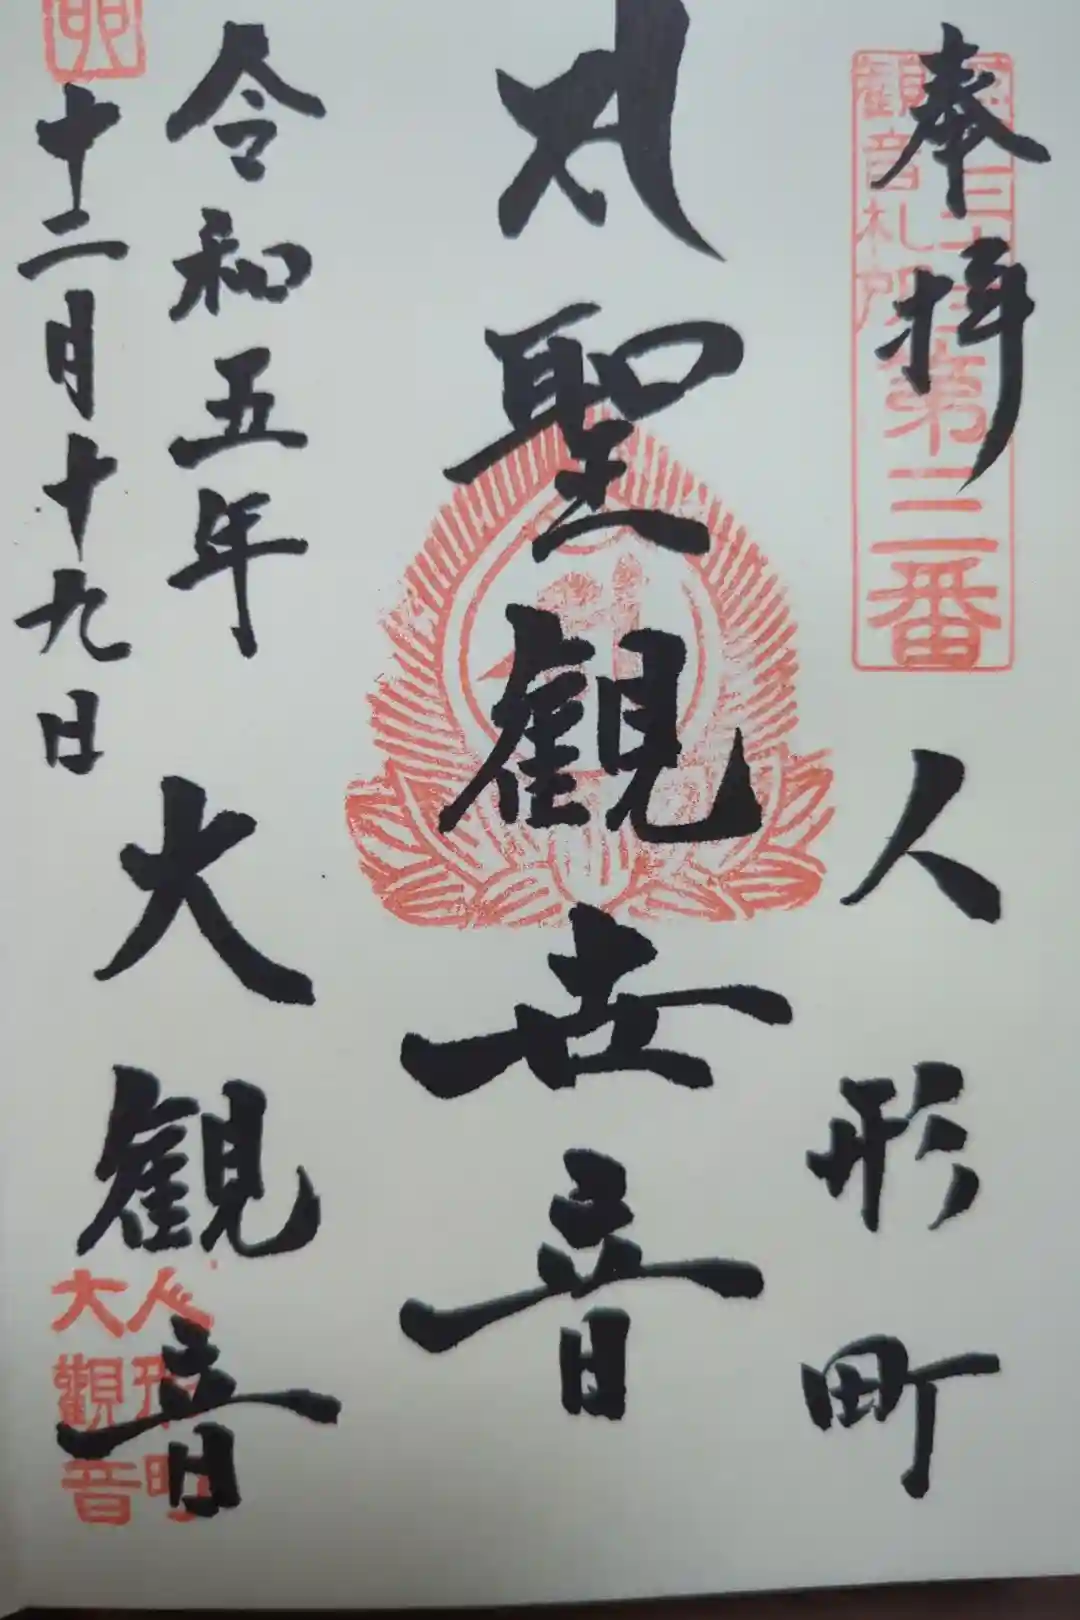 奉拝
観音札所第三番
人形町
聖観世音
令和五年
十二月十九日
大観音
人形町
大觀音